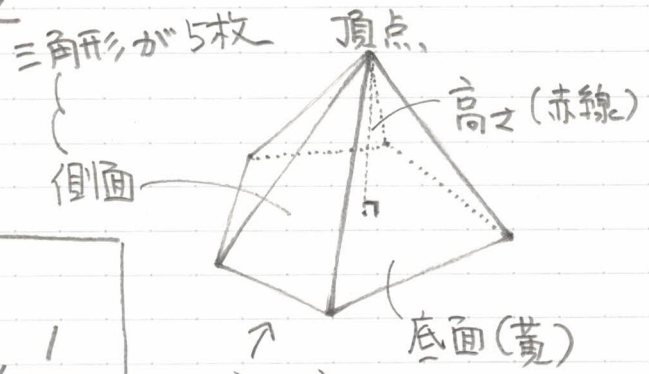 三角形が5枚
頂点
高さ(赤線)
側面
底面(黄)